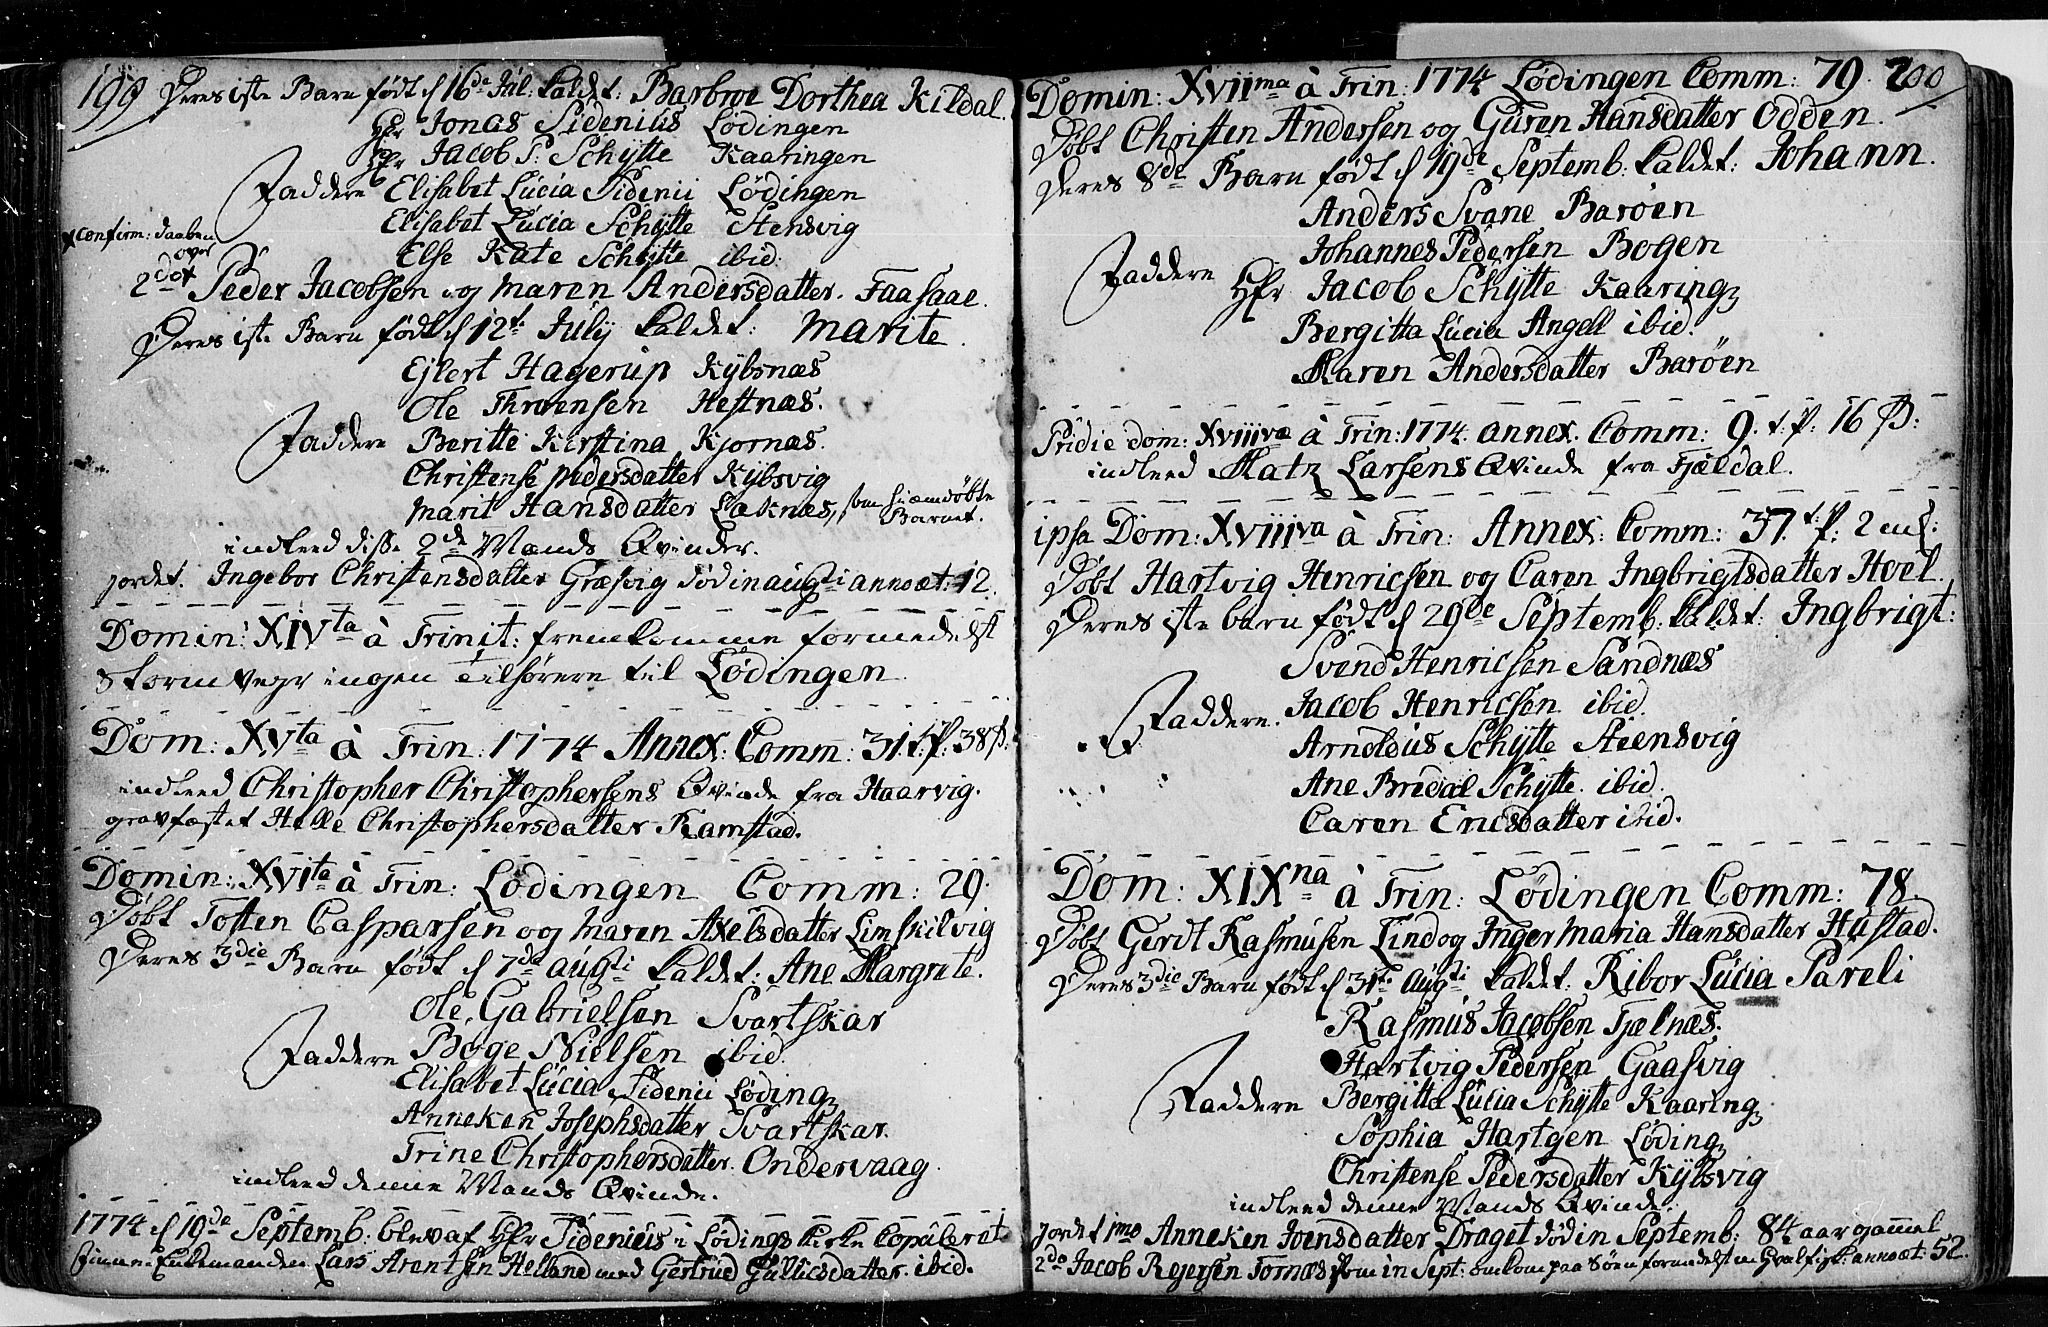 199
Deres 1ste Barn født d 16de Jul: kaldet: Barbroe Dorthea Kildal.
Hr Jonas Sidenius Lødingen
Hr Jacob P: Schÿtte Kaaringen
Faddere Elisabet Lucia Sidenii Lødingen
Elisabet Lucia Schÿtte Stensvig
Else Kate Schÿtte ibid.
x confirm: daaben
over
2do x Peder Jacobsen og Maren Andersdatter. Faasaae.
Deres 1ste Barn født d 12t July kaldet: Marite.
Ejlert Hagerup Kÿbsnæs
Ole Throensen Hestnæs.
Faddere Beritte Kirstina Kjornæs.
Christense Pedersdatter Kÿbsvig
Marit Hansdatter Laknæs, som hiemdøbte
Barnet.
indleed disse 2de Mands Qvinder.
jordet. Ingebor Christensdatter Græsvig død in augti anno æt: 12.
Domin: XIVta à Trinit: fremkomme formedelst
Storm vejr ingen Tilhørere til Lødingen.
Dom: XVta à Trin: 1774 Annex: Comm: 31 t. p: 38 ß:
indleed Christopher Christophersens Qvinde fra Haarvig.
gravfæstet Helle Christophersdatter Ramstad.
Domin: XVIta à Trin: Lødingen Comm: 29.
Døbt Tosten Casparsen og Maren Axelsdatter Limskilvig
Deres 3die Barn født d 7de augti kaldet: Ane Margrete.
Ole Gabrielsen Svartskar
Faddere Boge Nielsen ibid.
Elisabet Lucia Sidenii Løding
Anneken Josephsdatter Svartskar.
Trine Christophersdatter. Ondervaag.
indleed denne Mands Qvinde.
1774 d 19de Septemb: blev af Hr Sidenius i Lødings Kirke Copuleret
Enkemanden Lars Arentsen Helland med Giertrud Gullicsdatter. ibid.
Domin: XVIIma à Trin: 1774 Lødingen Comm: 79. 200
Døbt Christen Andersen og Guren Hansdatter Odden.
Deres 8de Barn født d 19de Septemb: kaldet: Johann.
Anders Svane Barøen
Johannes Pedersen Bogen
Faddere Hr Jacob Schÿtte Kaaring
Bergitta Lucia Angell ibid.
Maren Andersdatter Barøen
Pridie dom: XVIIIvæ à Trin: 1774. annex. Comm: 9. t. p: 16 ß:
indleed Matz Larsens Qvinde fra Fjældal.
ipsa Dom: XVIIIva à Trin: Annex: Comm: 37. t. p: 2
Døbt Hartvig Henricsen og Caren Ingbrigtsdatter Hoel.
Deres 1ste barn født d 29de Septemb: kaldet: Ingbrigt:
Svend Henricsen Sandnæs
Faddere. Jacob Henricsen ibid.
Arnoldus Schÿtte Steensvig
Ane Bredal Schÿtte. ibid.
Caren Ericsdatter ibid.
Dom: XIXna à Trin: Lødingen Comm: 78
Døbt Gerdt Rasmusen Lind og Inger Maria Hansdatter Hustad.
Deres 3die Barn født d 31te Augti kaldet: Ribor Lucia Pareli
Rasmus Jacobsen Fjælnæs.
Hartvig Pedersen Gaasvig
Faddere Bergitta Lucia Schÿtte Kaaring
Sophia Hartgen Løding
Christense Pedersdatter Kÿbsvig
indleed denne Mands Qvinde.
jordet 1mo Anneken Joensdatter Draget død in Septemb: 84 aar gammel
2do Jacob Rejersen Tornæs som in Sept: omkom paa Søen formedelst en Hvalfisk: anno æt: 52.